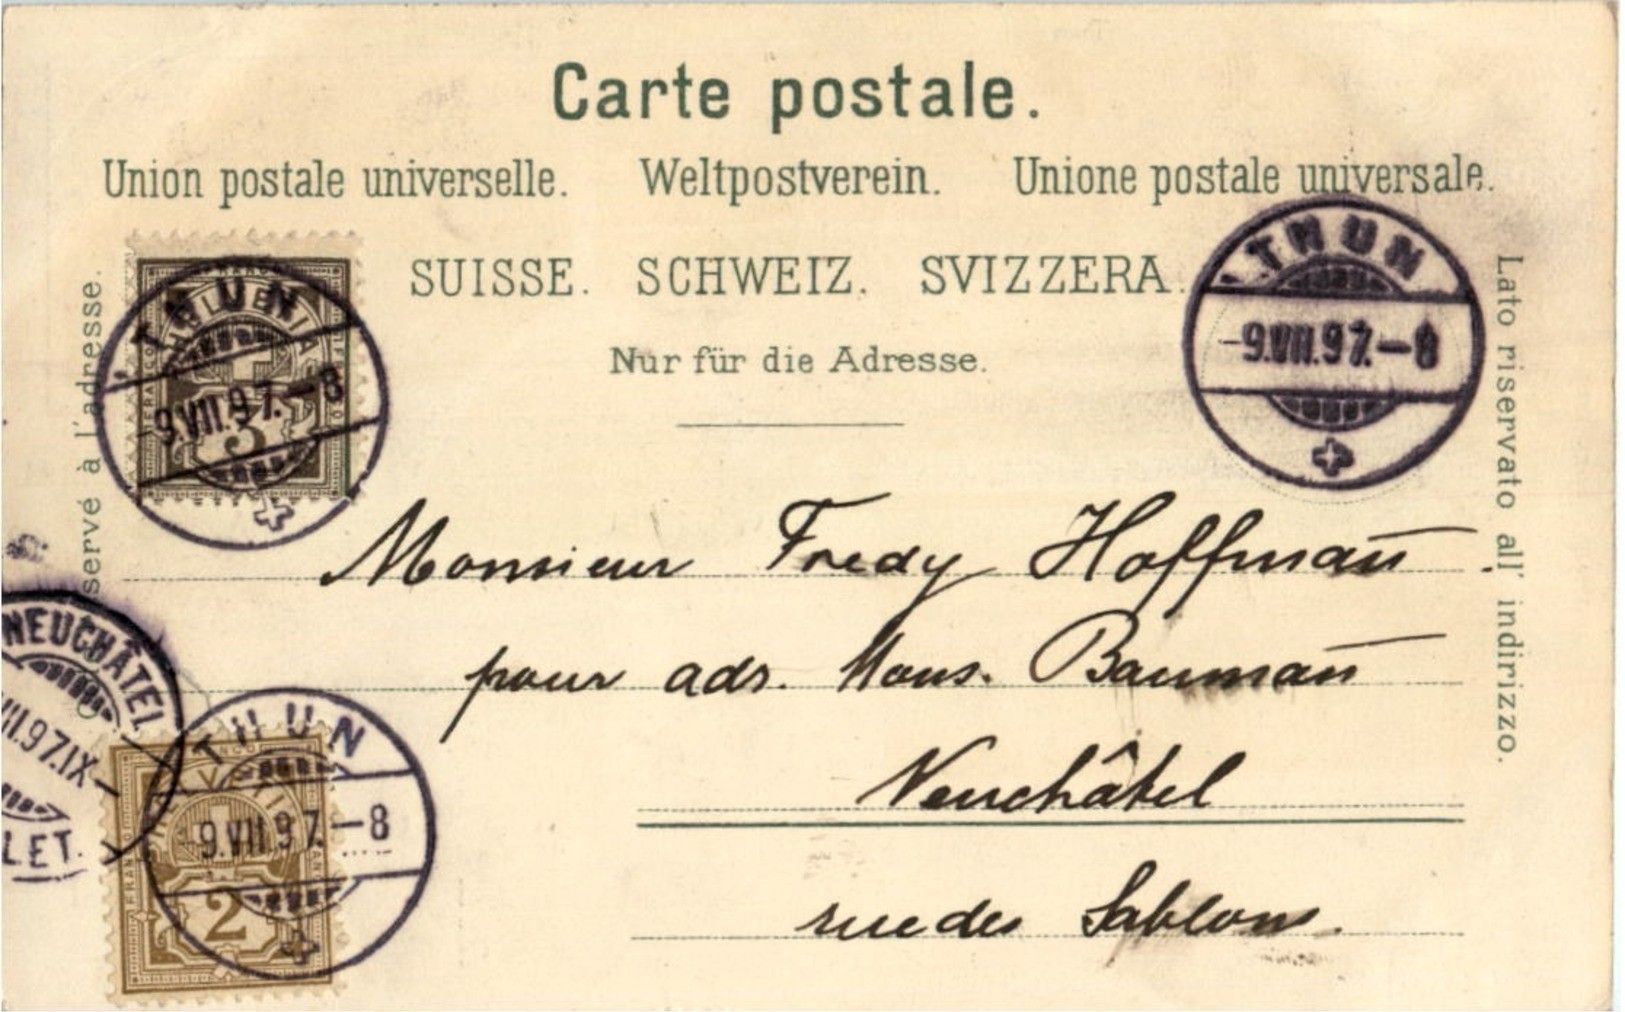 Carte postale.
Union postale universelle. Weltpostverein. Unione postale universale.
SUISSE. SCHWEIZ. SVIZZERA.
Nur für die Adresse.
servé à l'adresse.
Lato riservato all' indirizzo.
HELVETIA
3
THUN
-9.VII.97.-8
THUN
-9.VII.97.-8
Monsieur Fredy Hoffmañ.
pour adr. Mons. Baumañ
Neuchâtel
rue des Sablons.
NEUCHÂTEL
VII.97.IX-
LET.
FRANCO
2
THUN
-9.VII.97.-8